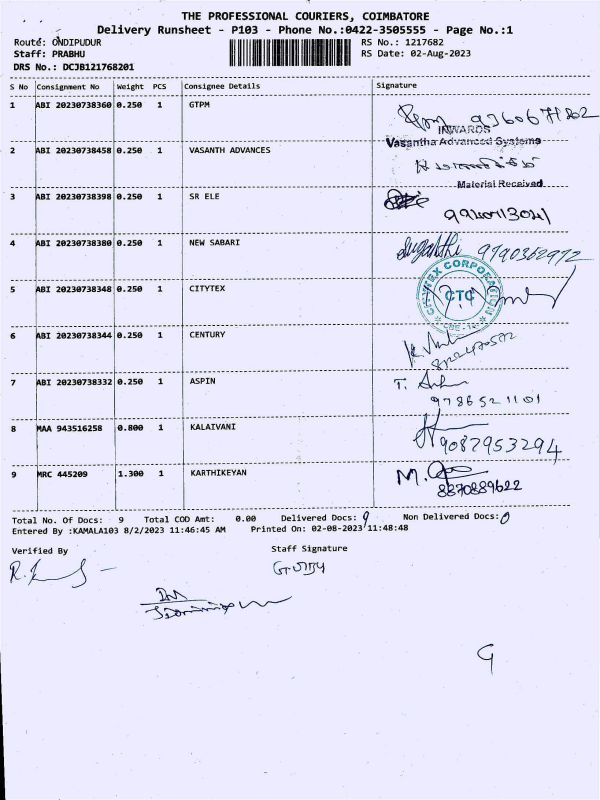 THE PROFESSIONAL COURIERS, COIMBATORE
Delivery Runsheet - P103 - Phone No.:0422-3505555 - Page No.:1
Route: ONDIPUDUR RS No.: 1217682
Staff: PRABHU RS Date: 02-Aug-2023
DRS No.: DCJB121768201
S No Consignment No Weight PCS Consignee Details Signature
1 ABI 20230738360 0.250 1 GTPM
INWARDS
Vasantha Advanced Systems
2 ABI 20230738458 0.250 1 VASANTH ADVANCES
Material Received
3 ABI 20230738398 0.250 1 SR ELE
4 ABI 20230738380 0.250 1 NEW SABARI Suganthi 9790362972
5 ABI 20230738348 0.250 1 CITYTEX CITYTEX CORPORATION CTC CBE-14
6 ABI 20230738344 0.250 1 CENTURY
7 ABI 20230738332 0.250 1 ASPIN
9786521101
8 MAA 943516258 0.800 1 KALAIVANI
9087953294
9 MRC 445209 1.300 1 KARTHIKEYAN
8870889622
Total No. Of Docs: 9 Total COD Amt: 0.00 Delivered Docs: 9 Non Delivered Docs: 0
Entered By :KAMALA103 8/2/2023 11:46:45 AM Printed On: 02-08-2023 11:48:48
Verified By Staff Signature
9